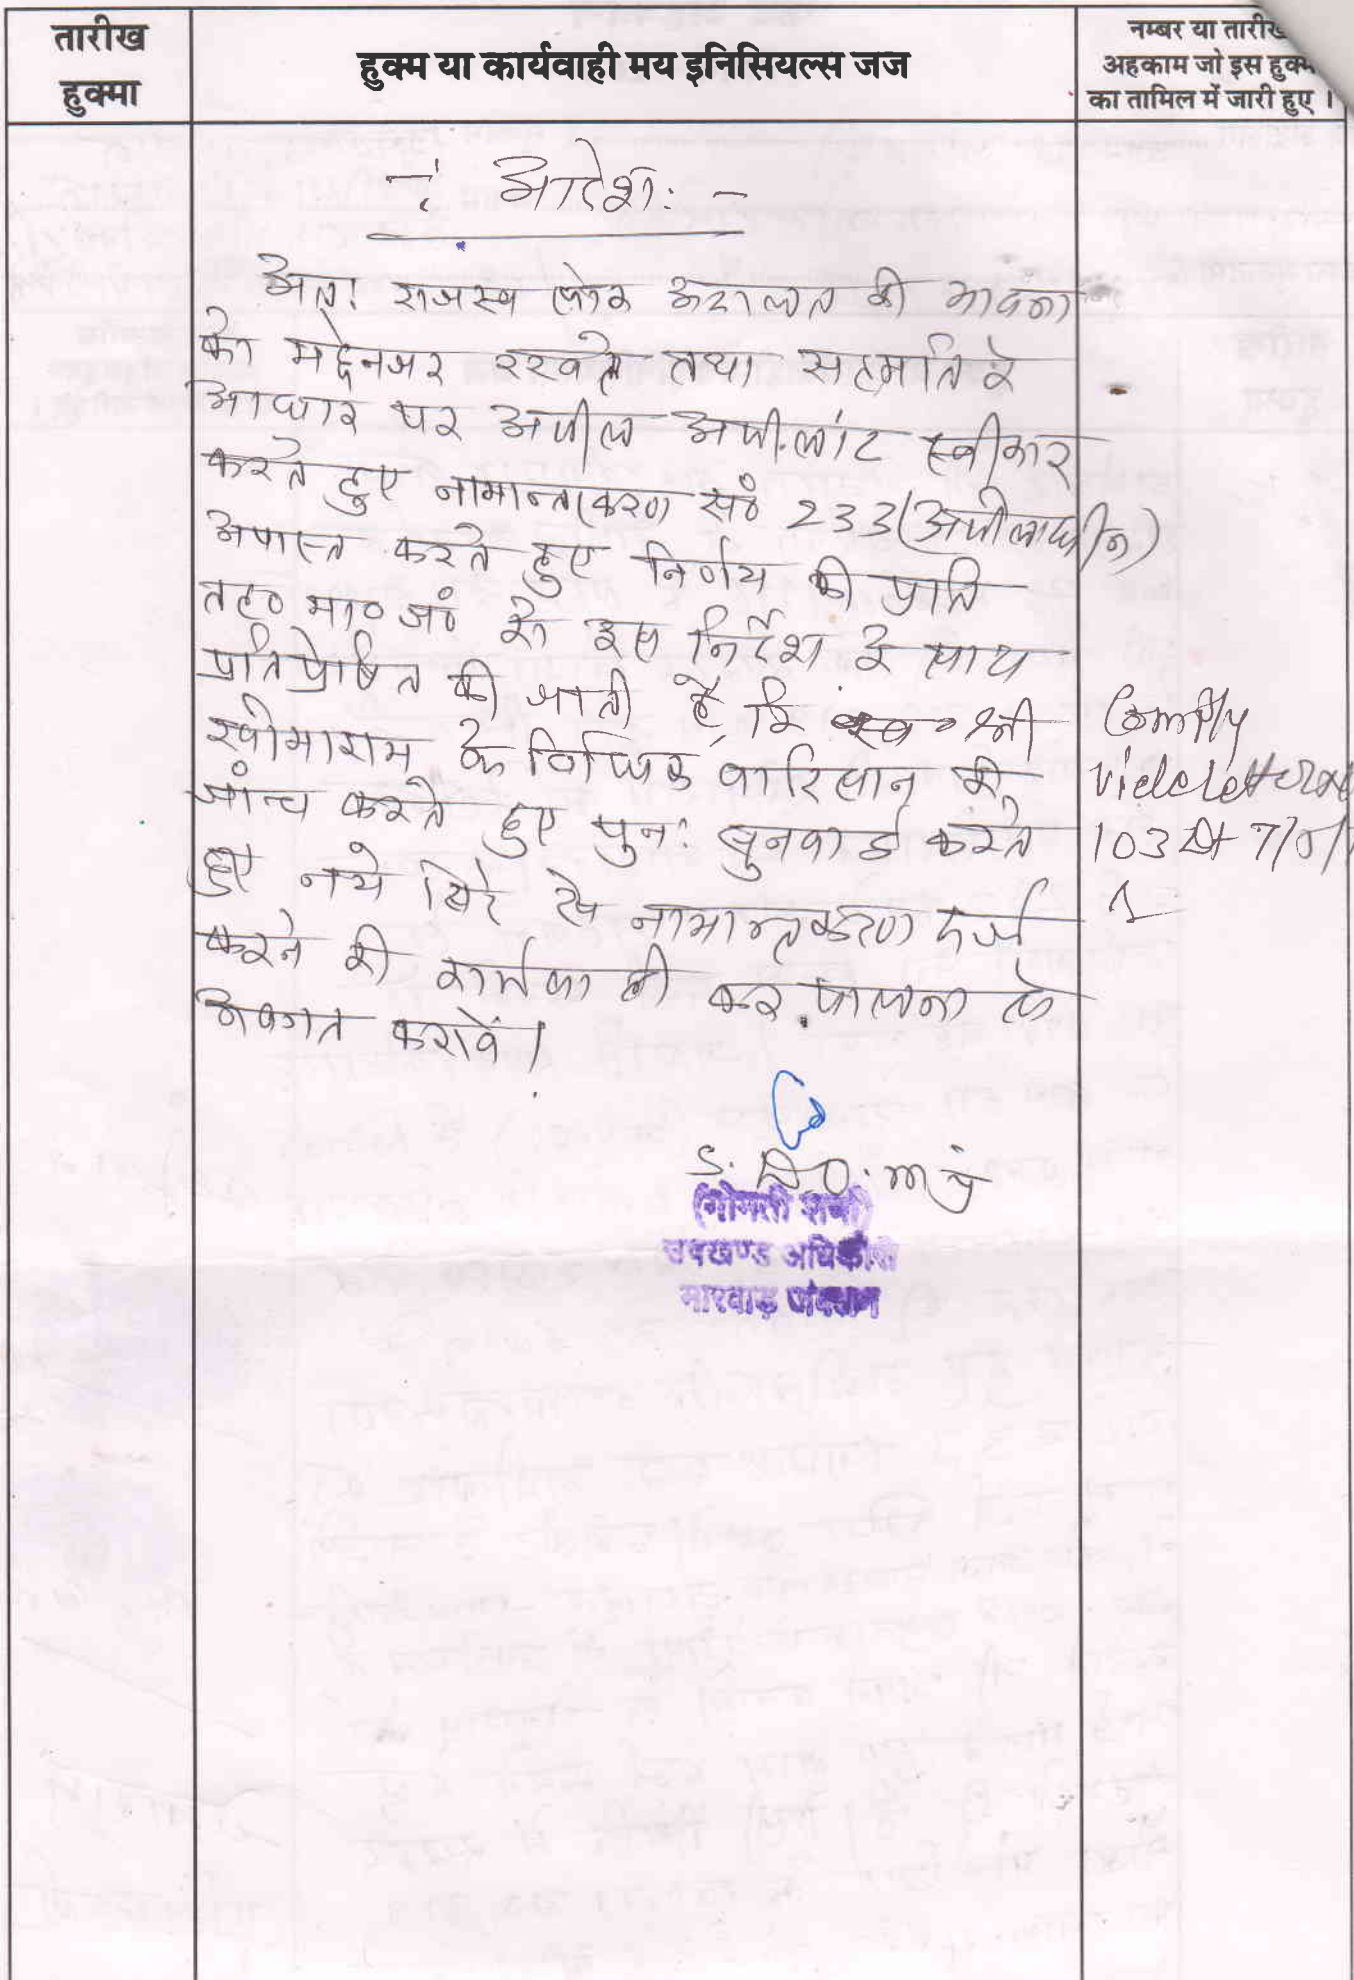 तारीख
हुक्मा
हुक्म या कार्यवाही मय इनिसियल्स जज
नम्बर या तारीख
अहकाम जो इस हुक्म
का तामिल में जारी हुए ।
-: आदेश: -
अत: राजस्व लोक अदालत की भावना
को मद्देनजर रखते तथा सहमति के
आधार पर अपील अपीलांट स्वीकार
करते हुए नामान्तकरण सं० 233 (अपीलाधीन)
अपास्त करते हुए निर्णय की प्रति
तह० मा० जं० को इस निर्देश के साथ
प्रतिप्रेषित की जाती है, कि स्व० श्री
खीमाराम के विधिक वारिसान की
जांच करते हुए पुन: सुनवाई करते
हुए नये सिरे से नामान्तकरण दर्ज
करने की कार्यवाही कर पालना से
अवगत करावें।
Comply
vide letter
103 dt 7/5/
S. D.O. mj
(गोमती शर्मा)
उपखण्ड अधिकारी
मारवाड़ जंक्शन